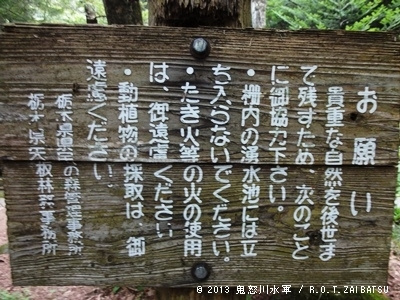 お願い
貴重な自然を後世ま
で残すため、次のこと
に御協力下さい。
・柵内の湧水池には立
ち入らないでください。
・たき火等の火の使用
は、御遠慮ください
・動植物の採取は 御
遠慮ください
栃木県県民の森管理事務所
栃木県矢板林務事務所
© 2013 鬼怒川水軍 / R.O.T.ZAIBATSU